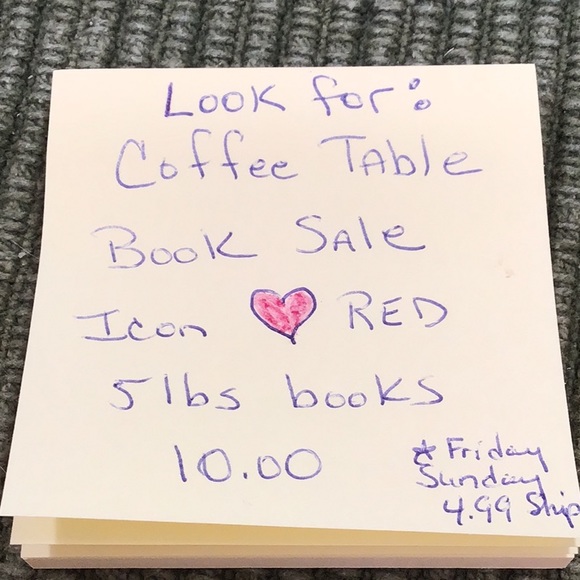 Look for:
Coffee Table
Book Sale
Icon ♥ RED
5 lbs books
10.00
☆ Friday
Sunday
4.99 Ship